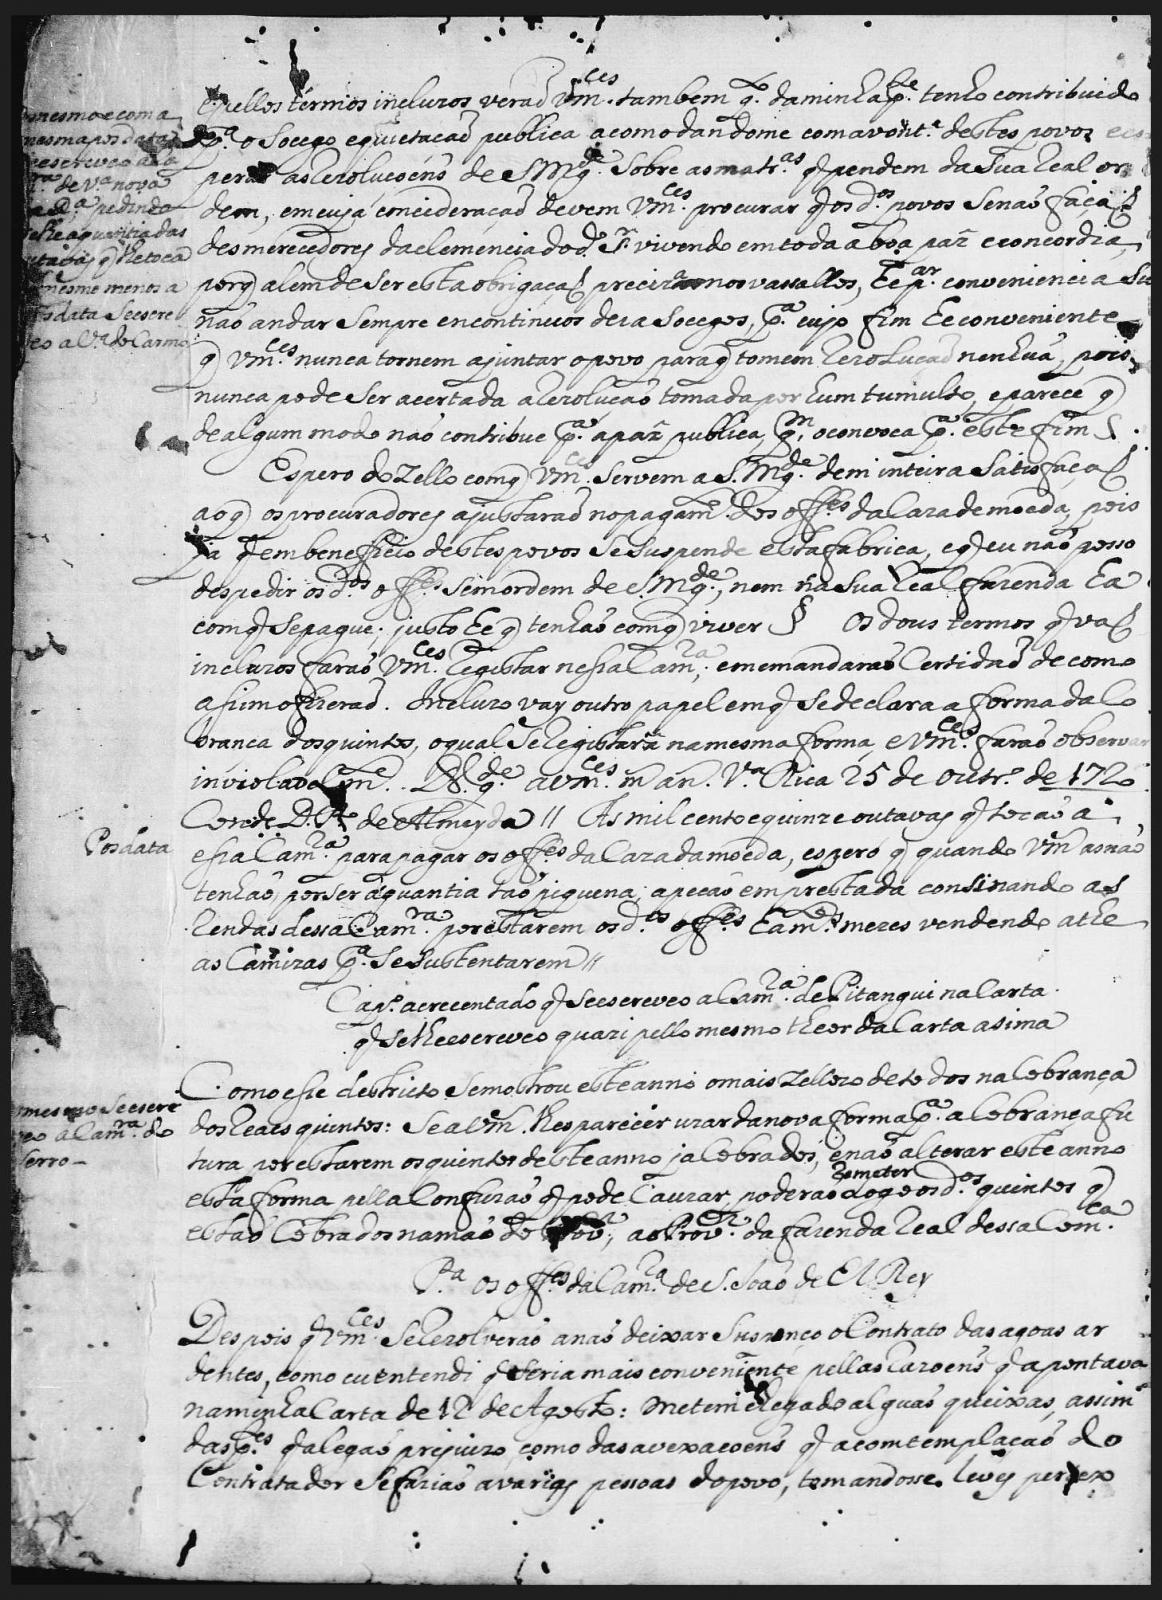 e pellos termos incluzos, veraõ Vm.ces tambem q. da minha p.te tenho contribuido
p.a o Socego e quietacaõ publica acomodandome com a vont.e destes povos e es
perar as Rezolucoens de S. Mg.de Sobre as matr.as q̃ pendem da Sua Real or
dem, em cuja concideracaõ devem Vm.ces procurar q̃ os d.os povos Se naõ façaõ
desmerecedores da clemencia do d.o Sr. vivendo em toda a boa paz e concordia,
porq̃ alem de Ser esta obrigaçaõ preciza nos vassallos, he p.ar conveniencia Su
naõ andar Sempre en continuos deza Socegos, p.a cujo fim he conveniente
q̃ Vm.ces nunca tornem a juntar o povo para q̃ tomem Rezoluçaõ nenhuã, pois
nunca pode Ser acertada a Rezoluçaõ tomada por hum tumulto, e parece q̃
de algum modo naõ contribue p.a a paz publica, q.m o convoca p.a este fim
Espero do Zello com q̃ Vm.ces Servem a S. Mg.de dem inteira Satisfaçaõ
ao q̃ os procuradores ajustaraõ no pagam.to dos off.es da Caza de moeda, pois
ja q̃ em beneficio destes povos Se Suspende esta fabrica, e q̃ eu naõ posso
despedir os d.os off.es Sem ordem de S. Mg.de, nem na Sua Real fazenda ha
com q̃ Se pague; justo he q̃ tenhaõ com q̃ viver § Os dous termos q̃ vaõ
incluzos faraõ Vm.ces Registar nessa Cam.ra, e me mandaraõ Certidaõ de como
assim o fizeraõ. Incluzo vay outro papel em q̃ Se declara a forma da Co
branca dos quintos, o qual Se Registará na mesma forma, e Vm.ces faraõ observar
inviolavelm.te D.s g.de a Vm.ces m. an. V.a Rica 25 de Outr.o de 1720
Conde D. P.o de Almeyda // As mil cento e quinze outavas q̃ tocaõ a
Posdata
essa Cam.ra para pagar os off.es da Caza da moeda, espero q̃ quando Vm.ces as naõ
tenhaõ, por Ser a quantia taõ piquena, a peçaõ emprestada consinando as
Rendas dessa Cam.ra por estarem os d.os off.es ha m.os mezes vendendo athe
as Camizas p.a Se Sustentarem //
Cap.o acrecentado q̃ Se escreveo a Cam.ra de Pitangui na Carta
q̃ Se lhe escreveo quazi pello mesmo theor da Carta asima
Como esse destricto Se mostrou este anno o mais Zellozo de todos na Cobrança
dos Reaes quintos: Se a Vm.ces lhes parecer uzar da nova forma p.a a Cobrança fu
tura por estarem os quintos deste anno ja Cobrados, e naõ alterar este anno
esta forma pella Confuzaõ q̃ pode Cauzar, poderaõ remeter logo os d.os quintos q̃
estaõ Cobrados na maõ do Prov.r, ao Prov.r da fazenda Real dessa Com.ca
P.a os off.es da Cam.ra de S. Joaõ de El Rey
Despois q̃ Vm.ces Se Rezolveraõ a naõ deixar Suspenço o Contrato das agoas ar
dentes, como eu entendi q̃ Seria mais conveniente pellas Razoens q̃ apontava
na minha Carta de 12 de Agosto: me tem chegado alguãs queixas, assim
das p.tes q̃ alegaõ prejuizo, como das avexacoens q̃ a comtemplaçaõ do
Contratador Se faziaõ a varias pessoas do povo, tomandosse leves por ex
mesmo e com a
mesma posdata
Se escreveo a Ca
m.ra de V.a nova
da R.a pedindo
lhe a quantia das
outavas q̃ lhe toca
mesme menos a
posdata Se escre
veo a V.a do Carmo
O mesmo Se escre
veo a Cam.ra do
Serro